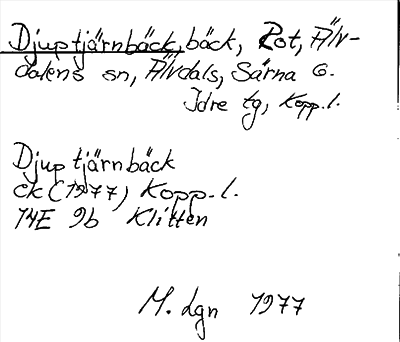 Djuptjärnbäck, bäck, Rot, Älv-
dalens sn, Älvdals, Särna o.
Idre tg, Kopp.l.
Djuptjärnbäck
ek (1977) Kopp.l.
14E 9b Klitten
M. Lgn 1977